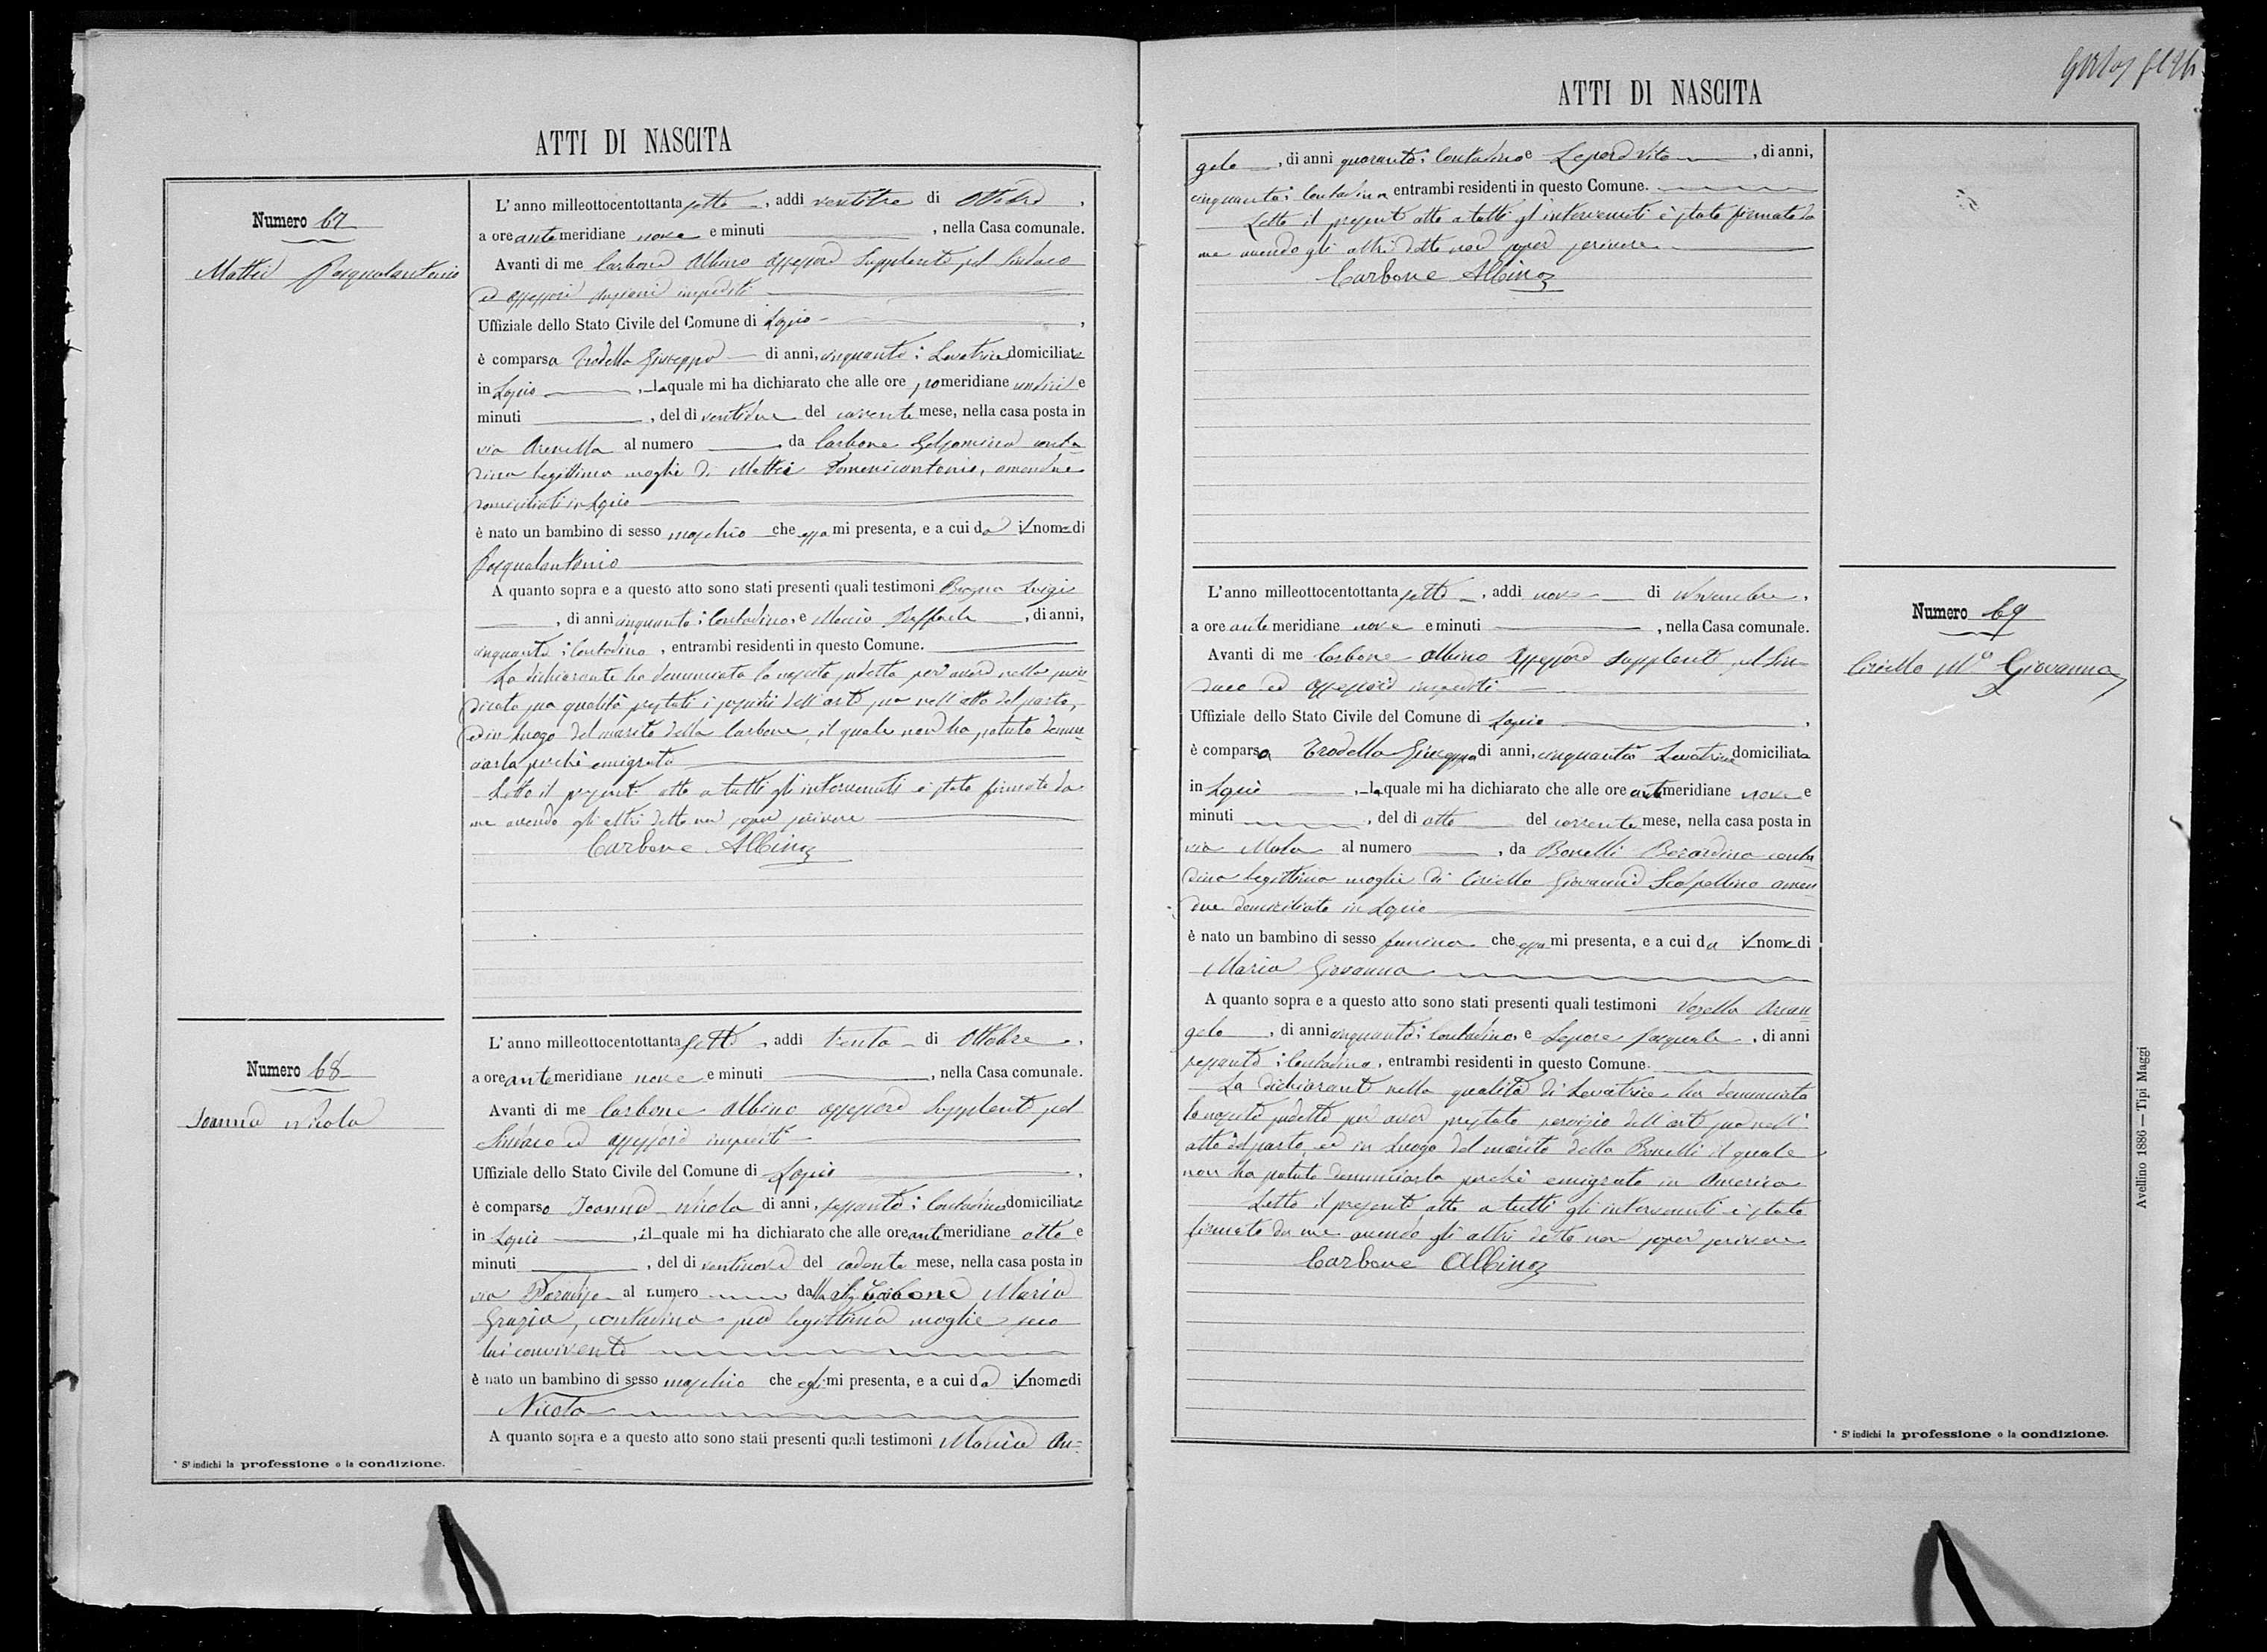 ATTI DI NASCITA
Numero 67
Mattei Pasqualantonio
L'anno milleottocentottanta sette, addi ventitre di Ottobre,
a ore ante meridiane nove e minuti , nella Casa comunale.
Avanti di me Carbone Albino Assessore Supplente pel Sindaco
ed Assessori impediti
Uffiziale dello Stato Civile del Comune di Lapio ,
è comparsa Trodella Giuseppa di anni, cinquanta; Levatrice domiciliata
in Lapio , la quale mi ha dichiarato che alle ore pomeridiane undici e
minuti , del dì ventidue del corrente mese, nella casa posta in
via Arenella al numero , da Carbone Gelsomina conta-
dina legittima moglie di Mattei Domenicantonio, amendue
domiciliati in Lapio
è nato un bambino di sesso maschio che essa mi presenta, e a cui da il nome di
Pasqualantonio
A quanto sopra e a questo atto sono stati presenti quali testimoni Luigi
, di anni cinquanta; Contadino, e Raffaele , di anni,
cinquanta; Contadino , entrambi residenti in questo Comune.
La dichiarante ha denunciata la nascita sudetta per aver nella
sua qualità prestati i dell'arte sua nell'atto del parto,
ed in luogo del marito della Carbone, il quale non ha potuto denun-
ciarla perchè emigrato
Letto il presente atto a tutti gli intervenuti è stato firmato da
me avendo gli altri detto non saper scrivere
Carbone Albino
Numero 68
Ioanna Nicola
L'anno milleottocentottanta sette, addi trenta di Ottobre,
a ore ante meridiane nove e minuti , nella Casa comunale.
Avanti di me Carbone Albino Assessore Supplente pel
Sindaco ed Assessori impediti
Uffiziale dello Stato Civile del Comune di Lapio ,
è comparso Ioanna Nicola di anni, sessanta; Contadino domiciliato
in Lapio , il quale mi ha dichiarato che alle ore antimeridiane otto e
minuti , del dì ventinove del cadente mese, nella casa posta in
via Paradiso al numero dalla Carbone Maria
Grazia, contadina sua legittima moglie seco
lui convivente
è nato un bambino di sesso maschio che egli mi presenta, e a cui da il nome di
Nicola
A quanto sopra e a questo atto sono stati presenti quali testimoni An-
* S'indichi la professione o la condizione.
ATTI DI NASCITA
gelo , di anni quaranta; Contadino e Lepore Vito , di anni,
cinquanta; Contadino entrambi residenti in questo Comune.
Letto il presente atto a tutti gl'intervenuti è stato firmato da
me avendo gli altri detto non saper scrivere
Carbone Albino
L'anno milleottocentottanta sette , addi nove di Novembre,
a ore ante meridiane nove e minuti , nella Casa comunale.
Avanti di me Carbone Albino Assessore Supplente pel Sin-
daco ed Assessori impediti
Uffiziale dello Stato Civile del Comune di Lapio ,
è comparsa Trodella Giuseppa di anni, cinquanta Levatrice domiciliata
in Lapio , la quale mi ha dichiarato che alle ore antimeridiane nove e
minuti , del dì otto del corrente mese, nella casa posta in
via al numero , da Bonelli Berardina conta
dina legittima moglie di Ciriello Giovanni Scalpellino amen
due domiciliati in Lapio
è nato un bambino di sesso feminina che essa mi presenta, e a cui da il nome di
Maria Giovanna
A quanto sopra e a questo atto sono stati presenti quali testimoni Vozella Arcan-
gelo , di anni cinquanta; Contadino, e Lepore Pasquale , di anni
sessanta; Contadino, entrambi residenti in questo Comune.
La dichiarante nella qualità di Levatrice ha denunciata
la nascita sudetta per aver prestato servizio dell'arte sua nell'
atto del parto, ed in luogo del marito della Bonelli il quale
non ha potuto denunciarla perchè emigrato in America
Letto il presente atto a tutti gli intervenuti è stato
firmato da me avendo gli altri detto non saper scrivere
Carbone Albino
Numero 69
Ciriello Ma Giovanna
* S'indichi la professione o la condizione.
Avellino 1886 — Tipi Maggi